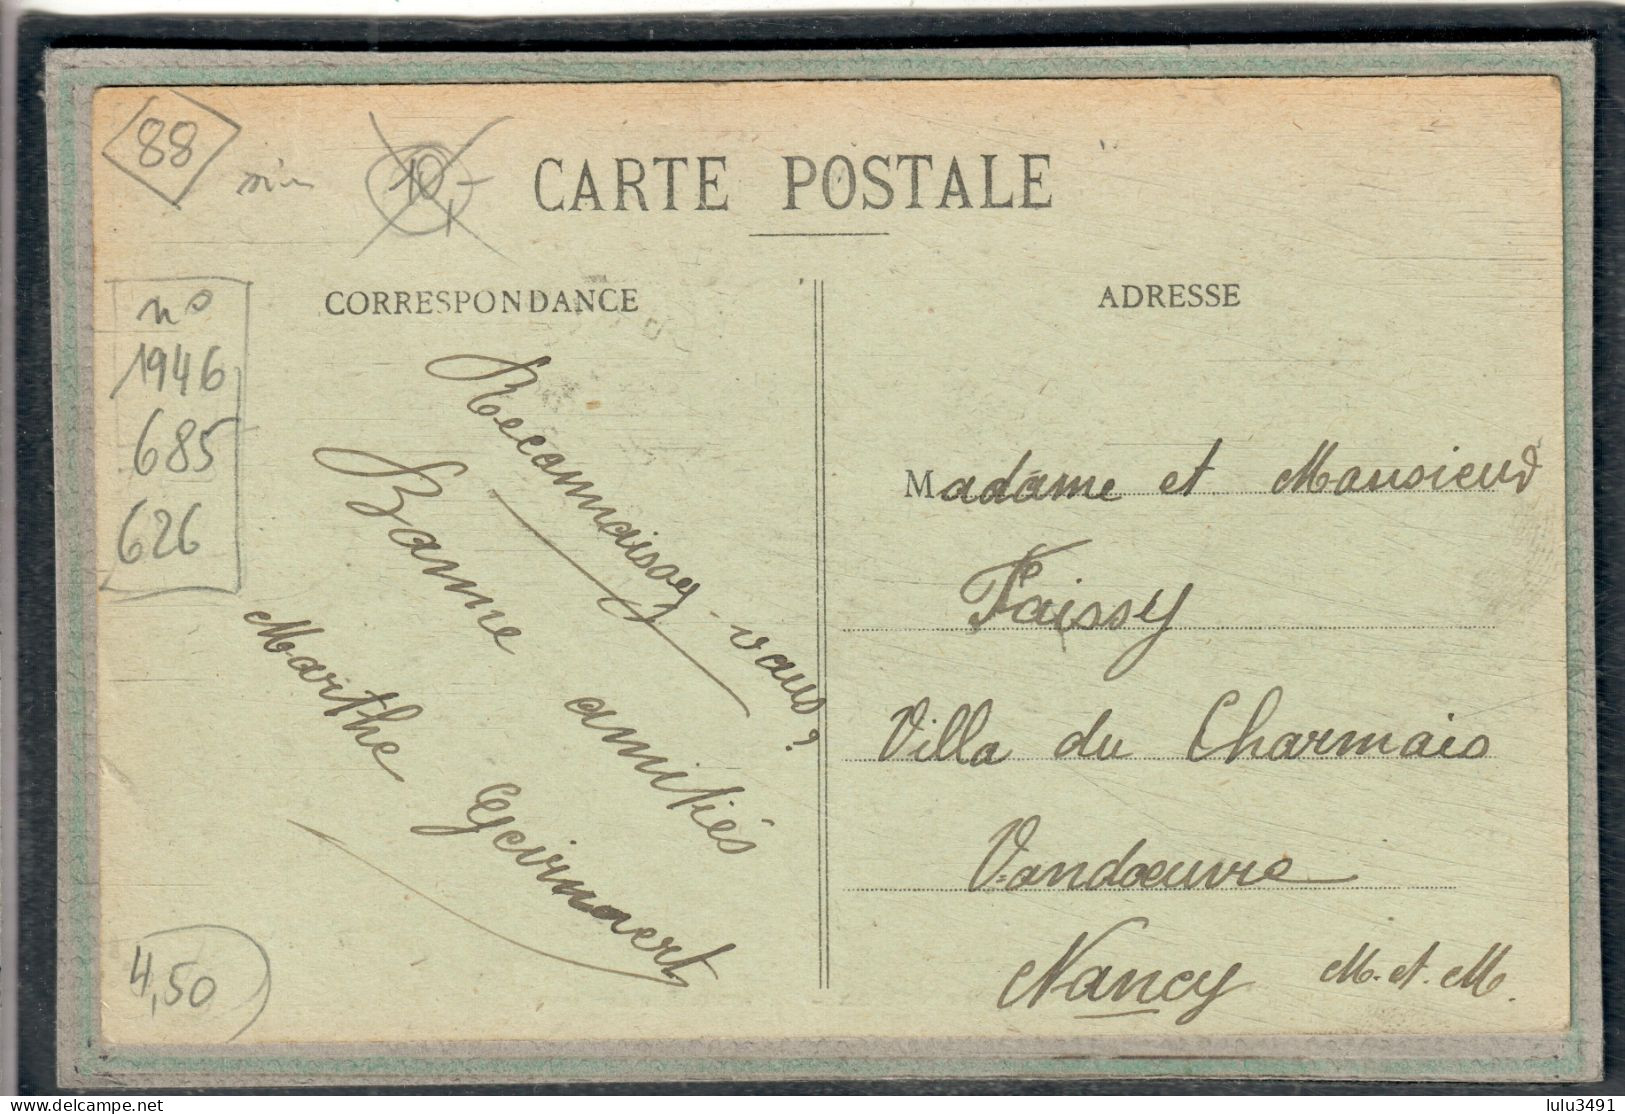 88
10,-
CARTE POSTALE
CORRESPONDANCE
ADRESSE
no
1946
685
626
Reconnaissez-vous?
Bonne amitiés
Marthe Geirnaert
Madame et Monsieur
Faissy
Villa du Charmois
Vandoeuvre
Nancy M.et.M.
4,50
delcampe.net
lulu3491